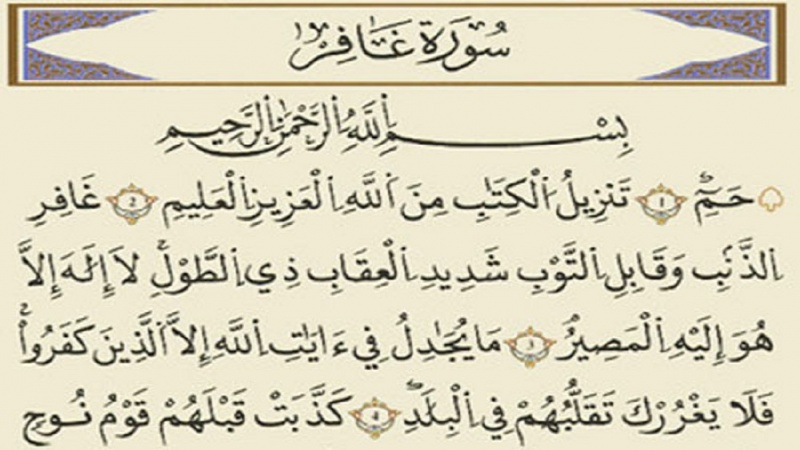 سُورَةُ غَافِرٍ
بِسْمِ اِ۬للَّهِ اِ۬لرَّحْمَٰنِ اِ۬لرَّحِيمِ
حَمِٓ ١ تَنزِيلُ اُ۬لْكِتَٰبِ مِنَ اَ۬للَّهِ اِ۬لْعَزِيزِ اِ۬لْعَلِيمِ ٢ غَافِرِ
اِ۬لذَّنۢبِ وَقَابِلِ اِ۬لتَّوْبِ شَدِيدِ اِ۬لْعِقَابِ ذِي اِ۬لطَّوْلِۖ لَآ إِلَٰهَ إِلَّا
هُوَ إِلَيْهِ اِ۬لْمَصِيرُۖ ٣ مَا يُجَٰدِلُ فِي ءَايَٰتِ اِ۬للَّهِ إِلَّا اَ۬لذِينَ كَفَرُواْۖ
فَلَا يَغْرُرْكَ تَقَلُّبُهُمْ فِي اِ۬لْبِلَٰدِۖ ٤ كَذَّبَتْ قَبْلَهُمْ قَوْمُ نُوحٍ